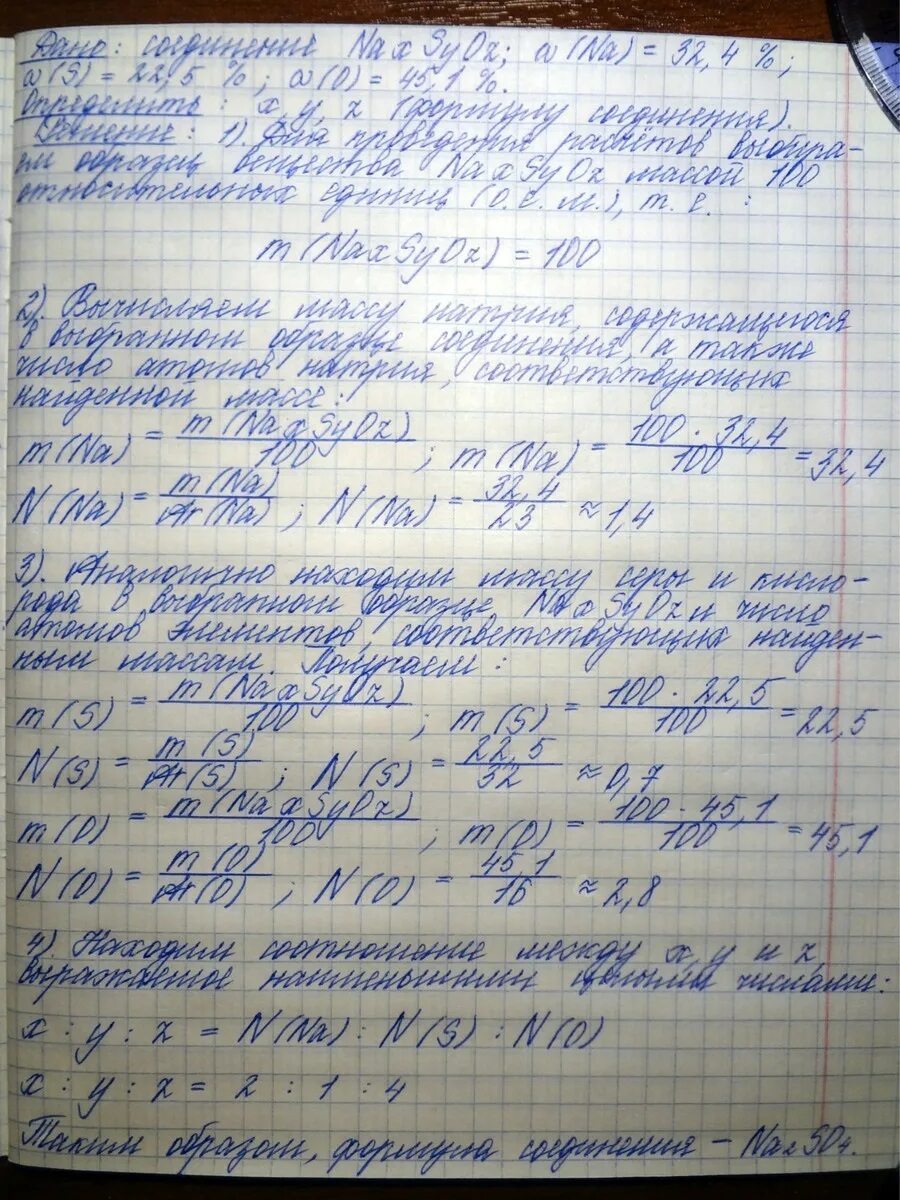 Дано: соединение NaxSyOz; ω(Na) = 32,4 %;
ω(S) = 22,5 %; ω(O) = 45,1 %.
Определить: x, y, z (формулу соединения).
Решение: 1). Для проведения расчётов выбира-
ем образец вещества NaxSyOz массой 100
относительных единиц (о.е.м.), т. е. :
m(NaxSyOz) = 100
2). Вычисляем массу натрия, содержащегося
в выбранном образце соединения, а также
число атомов натрия, соответствующих
найденной массе:
m(Na) = m(NaxSyOz)/100 ; m(Na) = 100 · 32,4/100 = 32,4
N(Na) = m(Na)/Ar(Na) ; N(Na) = 32,4/23 ≈ 1,4
3). Аналогично находим массу серы и кисло-
рода в выбранном образце NaxSyOz и число
атомов элементов, соответствующих найден-
ным массам. Получаем:
m(S) = m(NaxSyOz)/100 ; m(S) = 100 · 22,5/100 = 22,5
N(S) = m(S)/Ar(S) ; N(S) = 22,5/32 ≈ 0,7
m(O) = m(NaxSyOz)/100 ; m(O) = 100 · 45,1/100 = 45,1
N(O) = m(O)/Ar(O) ; N(O) = 45,1/16 ≈ 2,8
4). Находим соотношение между x, y и z,
выраженное наименьшими целыми числами:
x : y : z = N(Na) : N(S) : N(O)
x : y : z = 2 : 1 : 4
Таким образом, формула соединения – Na2SO4.